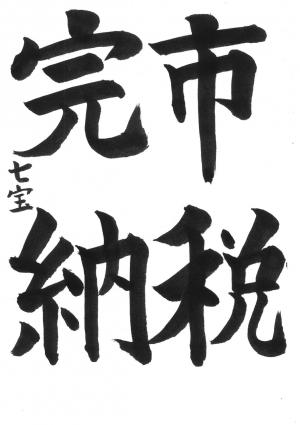 市税
完納
七宝